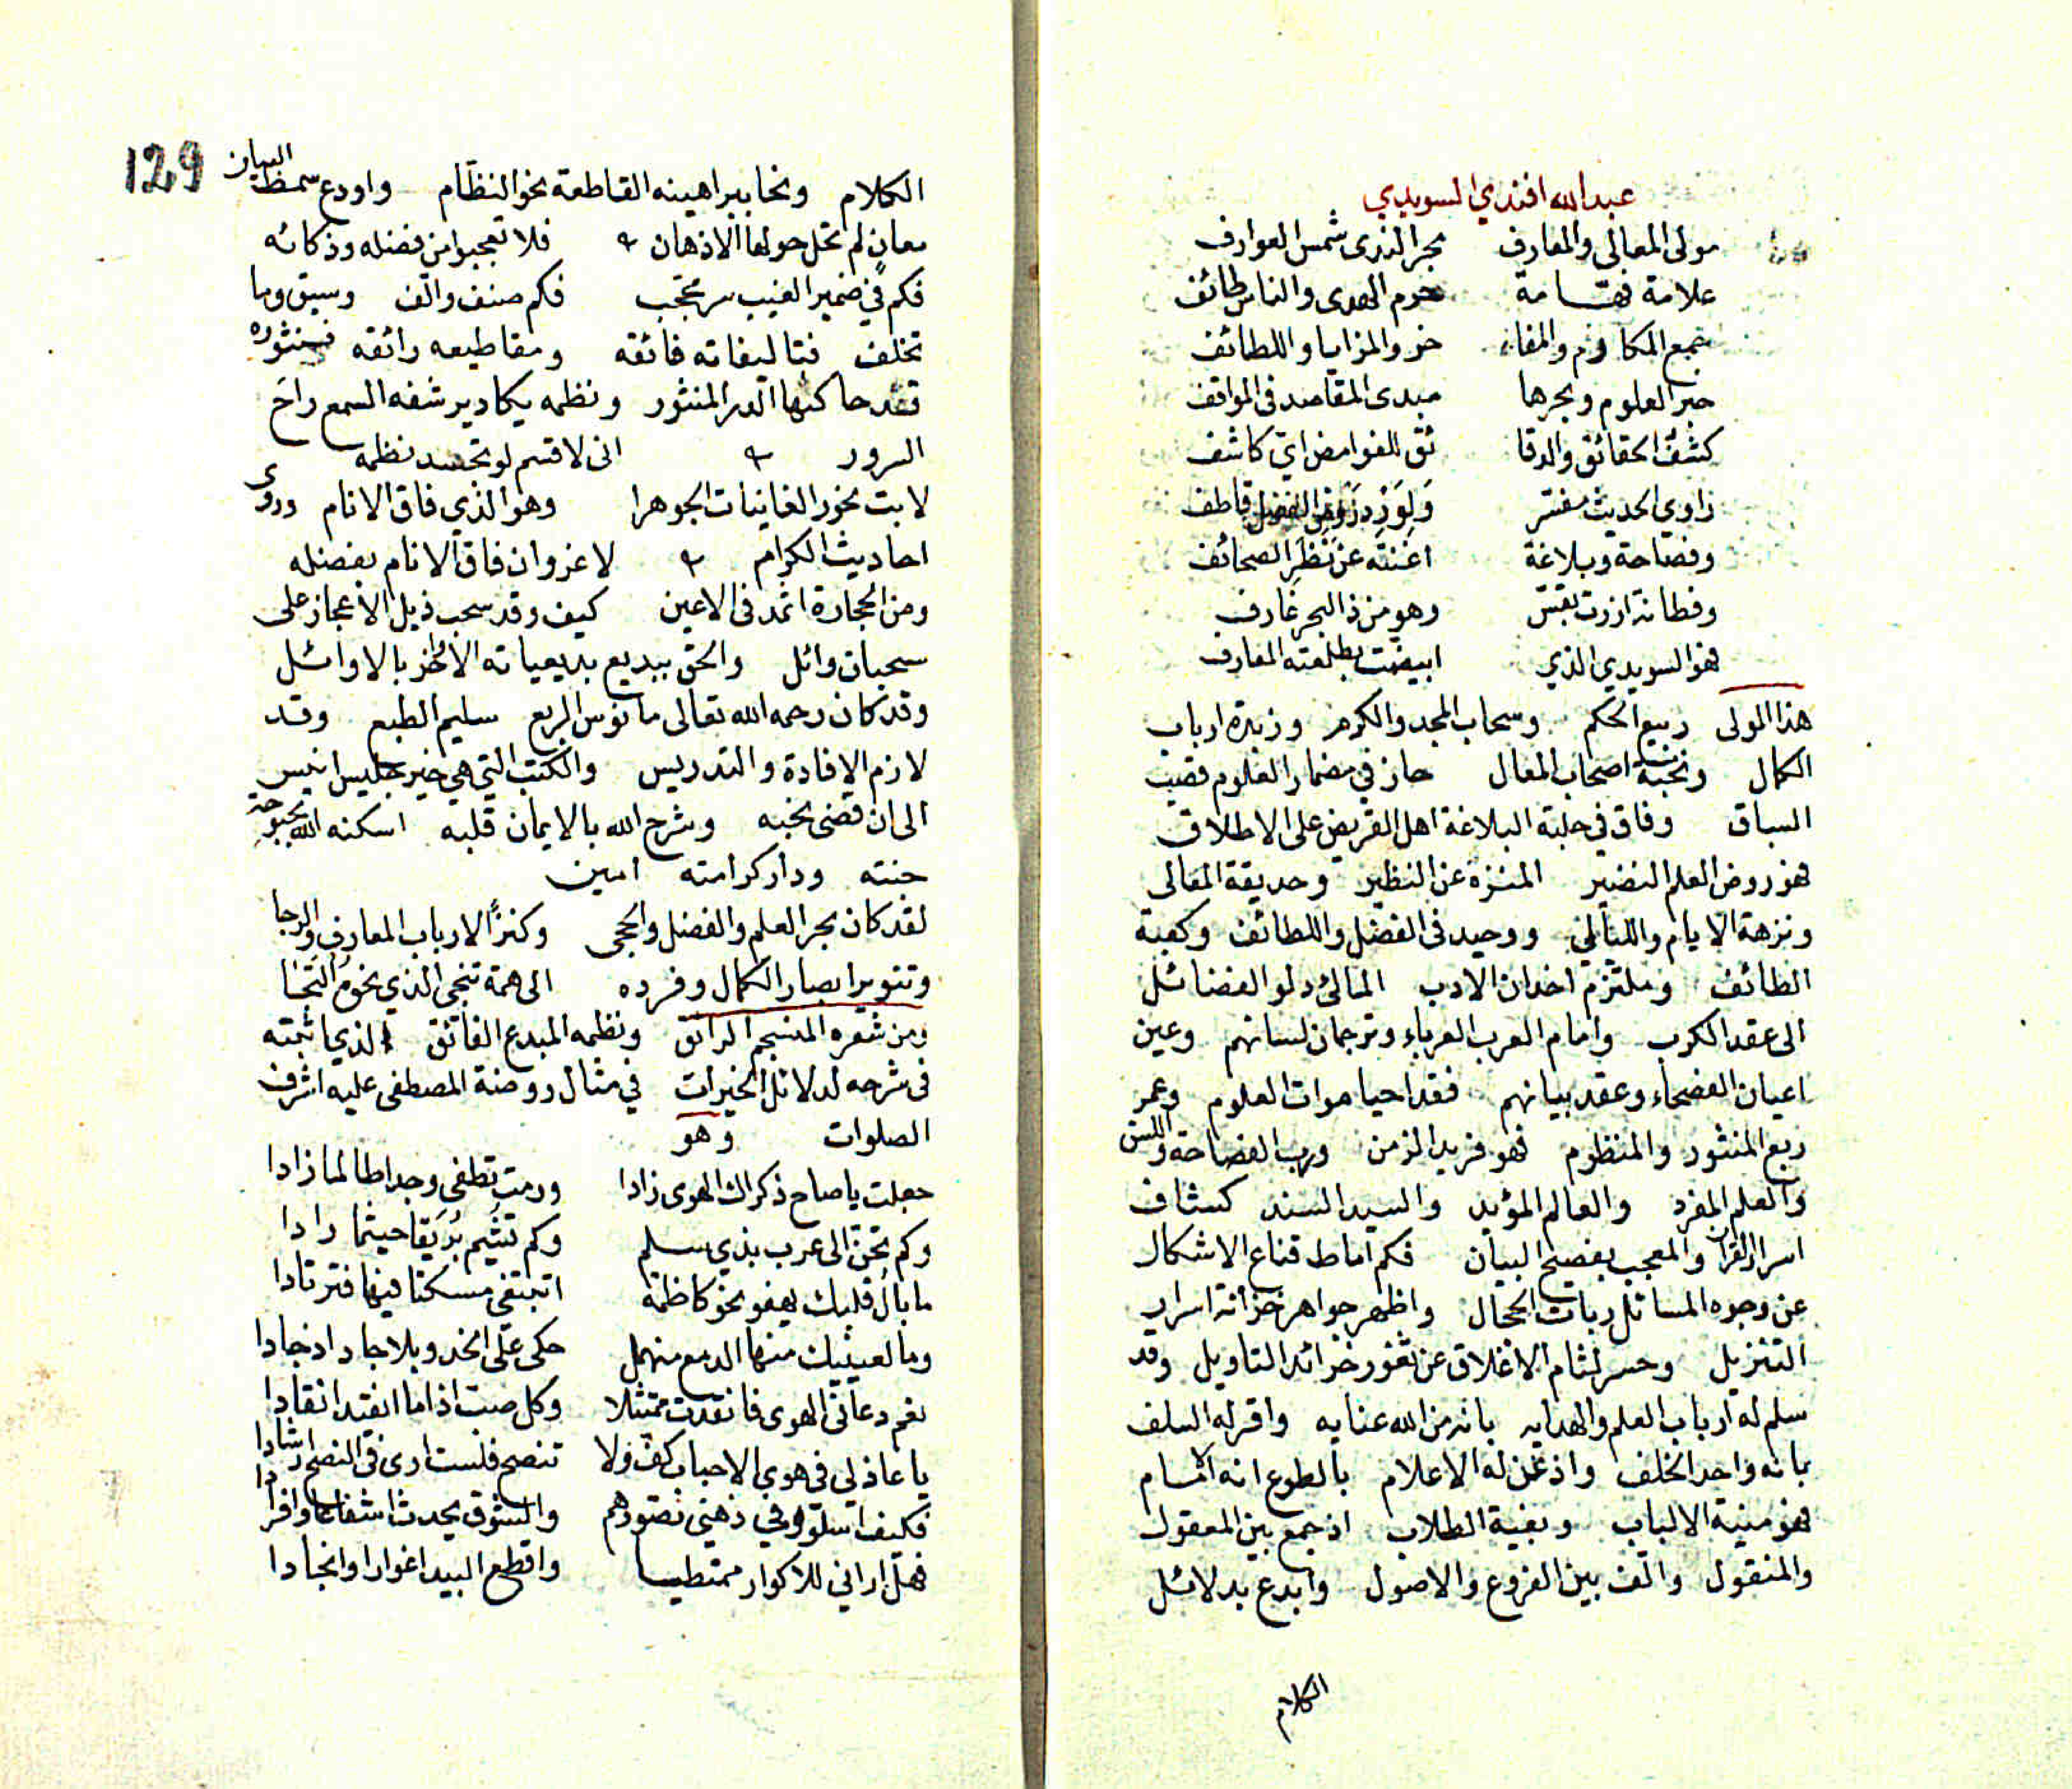 عبدالله افندي السويدي
مولى المعالي والمعارف بحر الندى شمس العوارف
علامة فهامة حرم الهدى والناس طائف
جمع المكارم والمفا خر والمزايا واللطائف
حبر العلوم وبحرها مبدى المقاصد فى المواقف
كشف الحقائق والدقا ئق للغوامض اي كاشف
راوي الحديث مفسر ولورد روض الفضل قاطف
وفصاحة وبلاغة اغنته عن نظر الصحائف
وفطانة ازرت بقس وهو من ذا البحر غارف
فهو السويدي الذي ابيضت بطلعته المعارف
هذا المولى ربيع الحكم وسحاب المجد والكرم وزبدة ارباب
الكمال ونخبة اصحاب المعال حاز في مضمار العلوم قصب
السباق وفاق في حلبة البلاغة اهل القريض على الاطلاق
فهو روض العلم النضير المنزه عن النظير وحديقة المعالى
ونزهة الايام والليالي ووحيد فى الفضل واللطائف وكعبة
الطائف وملتزم اخدان الادب المالئ دلو الفضائل
الى عقد الكرب وامام العرب العرباء وترجمان لسانهم وعين
اعيان الفصحاء وعقد بيانهم فقد احيا موات العلوم وعمر
ربع المنثور والمنظوم فهو فريد الزمن ورب الفصاحة واللسن
والعلم المفرد والعالم المؤيد والسيد السند كشاف
اسرار القران والمعجب بفصيح البيان فكم اماط قناع الاشكال
عن وجوه المسائل ربات الحجال واظهر جواهر خزانة اسرار
التنزيل وحسر لثام الاغلاق عن ثغور خرائد التاويل وقد
سلم له ارباب العلم والهدايه بانه من الله عنايه واقر له السلف
بانه واحد الخلف واذعن له الاعلام بالطوع انه الامام
فهو منية الالباب وبغية الطلاب اذ جمع بين المعقول
والمنقول والف بين الفروع والاصول وابدع بدلائل
الكلام
129
الكلام ونحا ببراهينه القاطعة نحو النظام واودع سمط البيان
معان لم تحل حولها الاذهان فلا تعجبوا من فضله وذكائه
فكم في ضمير الغيب سر محجب فكم صنف والف وسبق وما
تخلف فتاليفاته فائقه ومقاطيعه رائقه فمنثوره
قد حاكتها الدر المنثور ونظمه يكاد يرشفه السمع راح
السرور انى لاقسم لو تجسد نظمه
لابت نحور الغانيات الجوهرا وهو الذي فاق الانام وروى
احاديث الكرام لا غزوان فاق الانام بفضله
ومن الحجارة اثمد فى الاعين كيف وقد سحب ذيل الاعجاز على
سحبان وائل والحق ببديع بديعياته الاخر بالاوائل
وقد كان رحمه الله تعالى مانوس الربع سليم الطبع وقد
لازم الافادة والتدريس والكتب التي هي خير جليس انيس
الى ان قضى نحبه وشرح الله بالايمان قلبه اسكنه الله بحبوحة
جنته ودار كرامته امين
لقد كان بحر العلم والفضل والحجى وكنزًا لارباب المعارف والرجا
وتنوير ابصار الكمال وفرده الى همة تنجي الذي نحوه التجا
ومن شعره المنسجم الرائق ونظمه المبدع الفائق الذي اثبته
فى شرحه لدلائل الخيرات في مثال روضة المصطفى عليه اشرف
الصلوات وهو
جعلت يا صاح ذكراك الهوى زادا ورمت تطفى وجدا طالما زادا
وكم تحن الى عرب بذي سلم وكم تشيم بُرَيقا حيثما رادا
ما بال قلبك يهفو نحو كاظمة اتبتغي مسكنا فيها فترتادا
وما لعينيك منها الدمع منهمل حكى على الخد وبلا جاد اذ جادا
نعم دعاني الهوى فانقدت ممتثلا وكل صب اذا ما اقتيد انقادا
يا عاذلي في هوى الاحباب كف ولا تنصح فلست ارى فى النصح ارشادا
فكيف اسلو وفي ذهني تصورهم والشوق يحدث اشفاعا وافرادا
فهل اراني للاكوار ممتطيا واقطع البيد اغوارا وانجادا